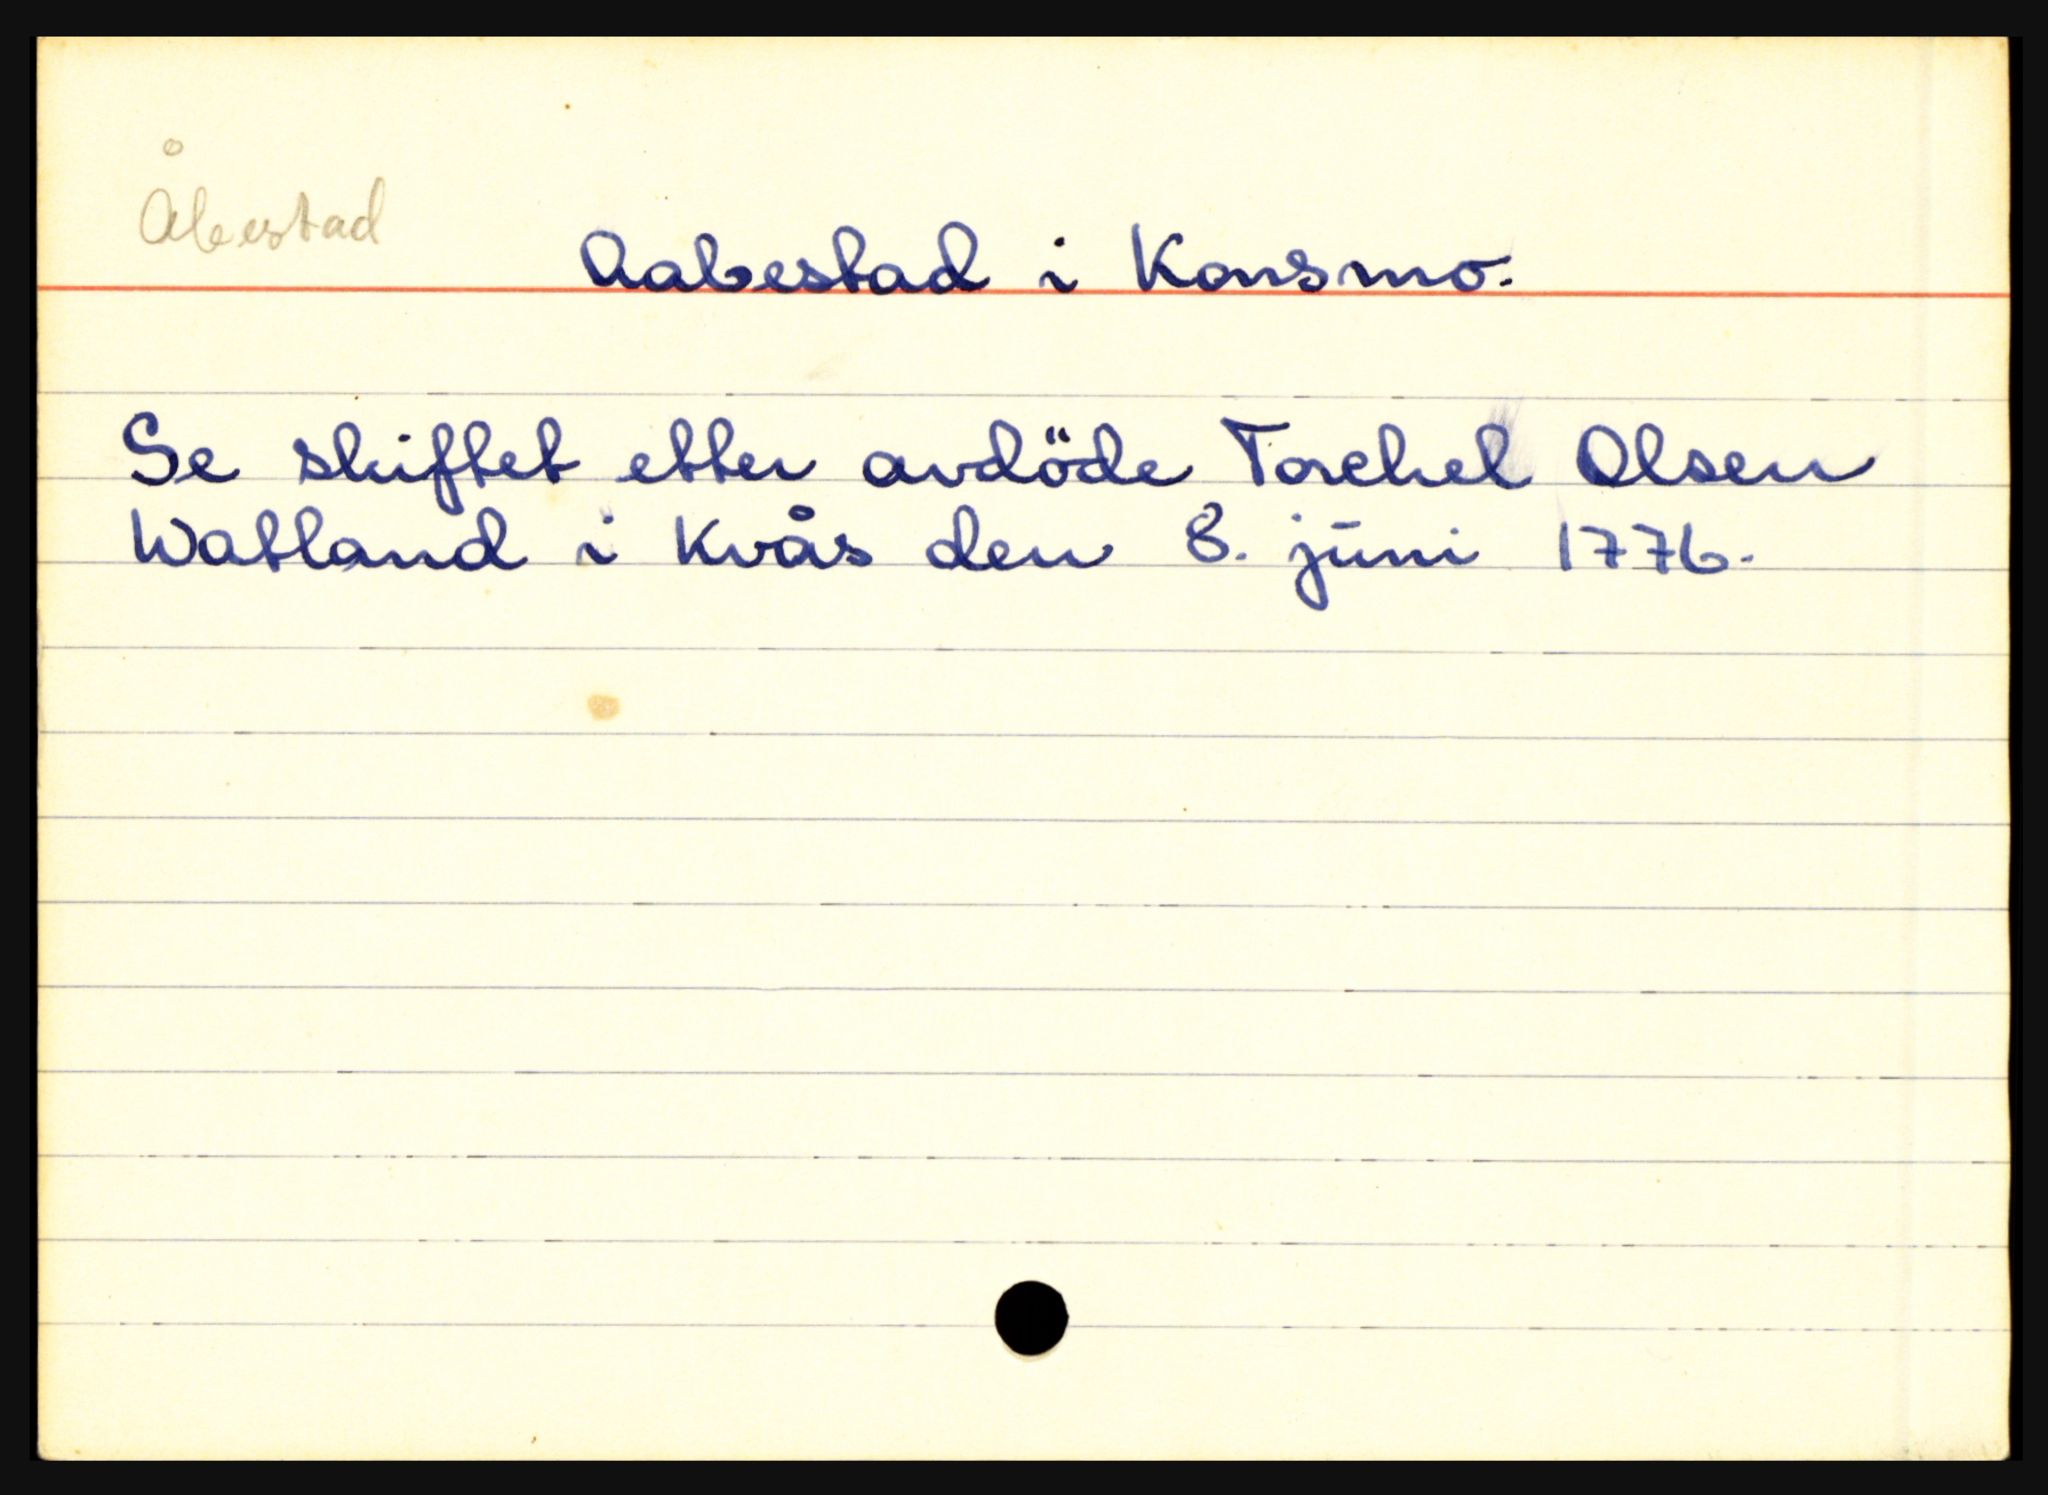 Åbestad
Aabestad i Konsmo.
Se skiftet etter avdöde Torchel Olsen
Watland i Kvås den 8. juni 1776.